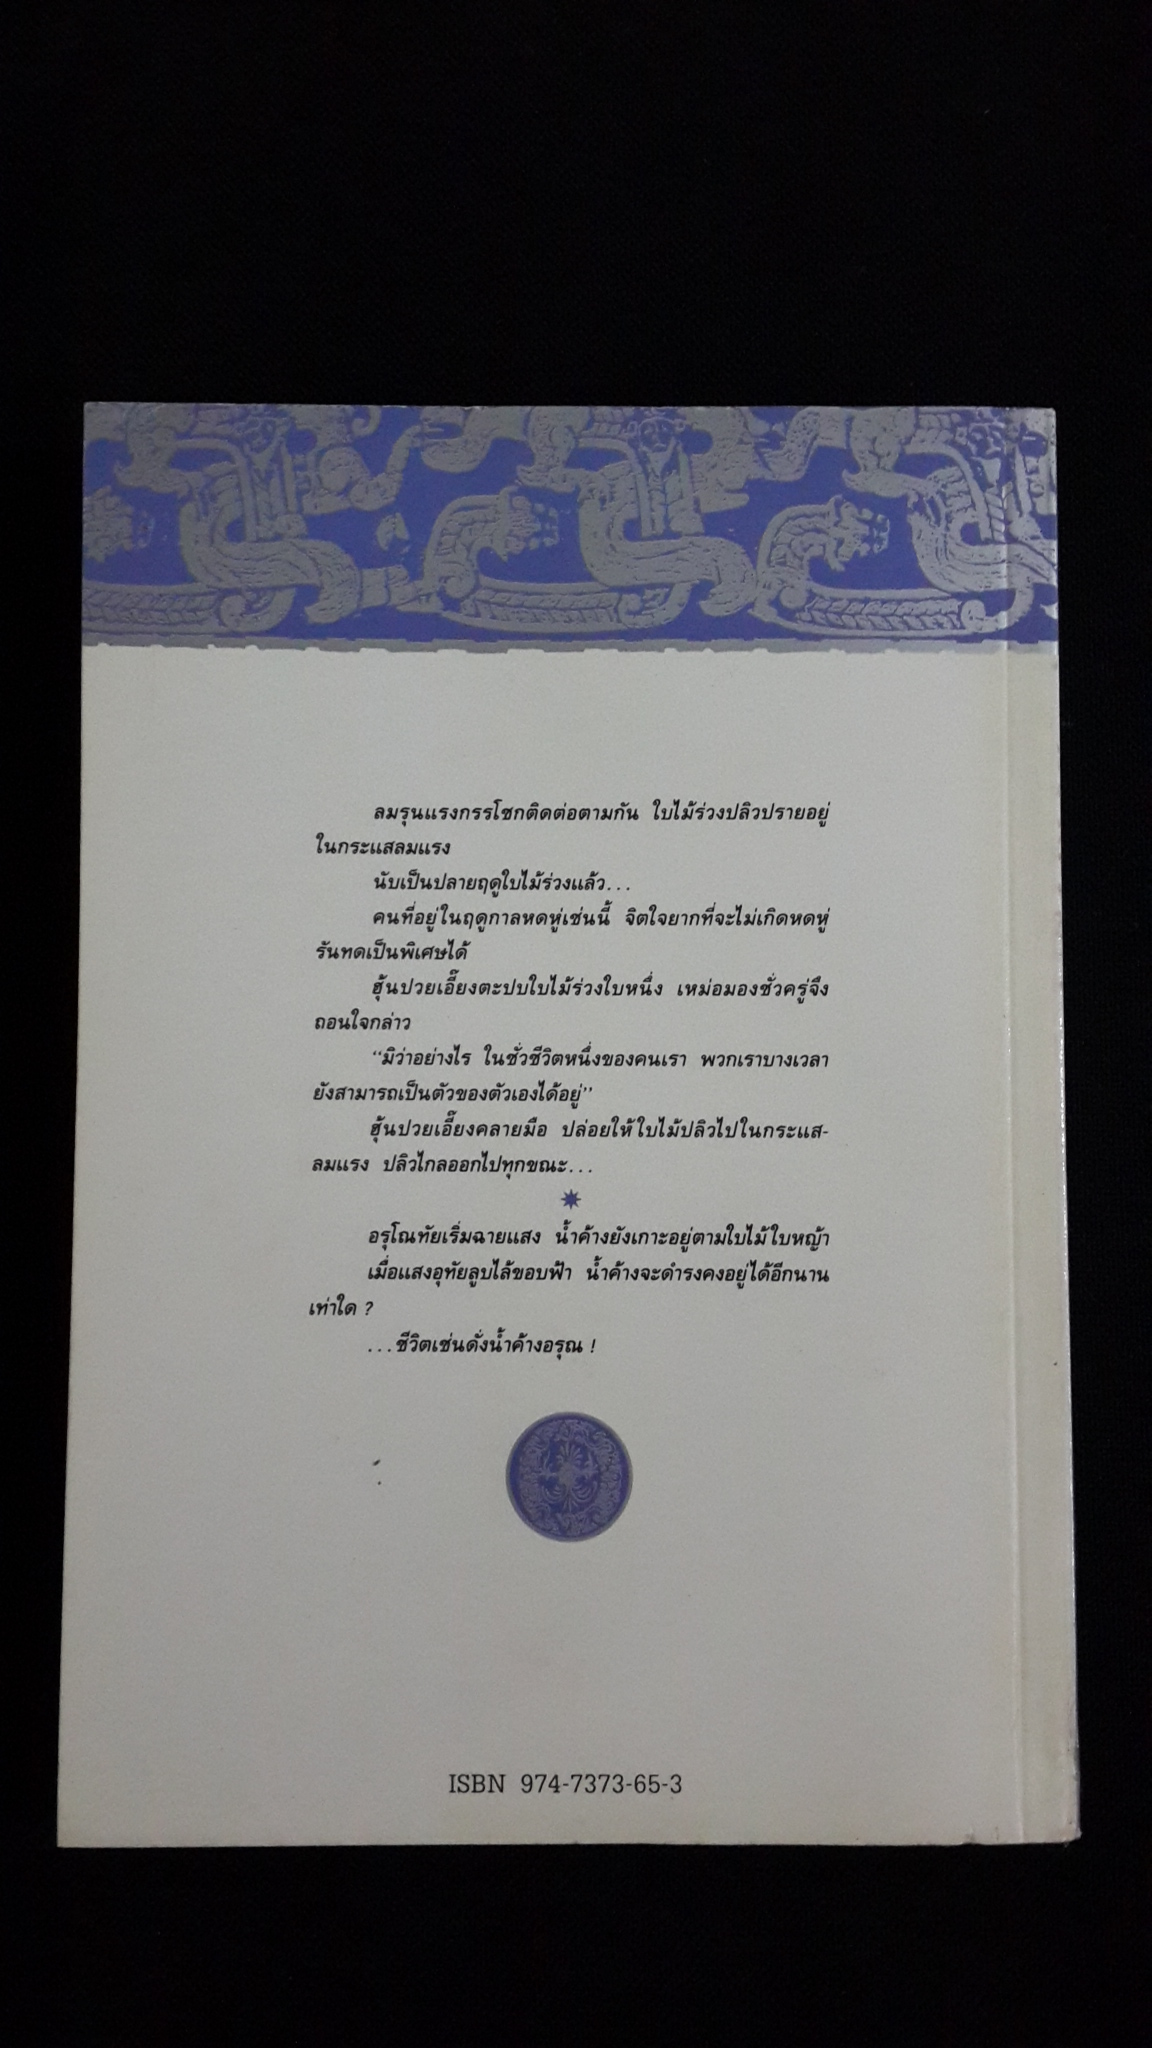 ลมรุนแรงกรรโชกติดต่อตามกัน ใบไม้ร่วงปลิวปรายอยู่
ในกระแสลมแรง
นับเป็นปลายฤดูใบไม้ร่วงแล้ว...
คนที่อยู่ในฤดูกาลหดหู่เช่นนี้ จิตใจยากที่จะไม่เกิดหดหู่
รันทดเป็นพิเศษได้
ฮุ้นปวยเอี๊ยงตะปบใบไม้ร่วงใบหนึ่ง เหม่อมองชั่วครู่จึง
ถอนใจกล่าว
“มิว่าอย่างไร ในชั่วชีวิตหนึ่งของคนเรา พวกเราบางเวลา
ยังสามารถเป็นตัวของตัวเองได้อยู่”
ฮุ้นปวยเอี๊ยงคลายมือ ปล่อยให้ใบไม้ปลิวไปในกระแส-
ลมแรง ปลิวไกลออกไปทุกขณะ...
อรุโณทัยเริ่มฉายแสง น้ำค้างยังเกาะอยู่ตามใบไม้ใบหญ้า
เมื่อแสงอุทัยลูบไล้ขอบฟ้า น้ำค้างจะดำรงคงอยู่ได้อีกนาน
เท่าใด ?
...ชีวิตเช่นดั่งน้ำค้างอรุณ !
ISBN 974-7373-65-3